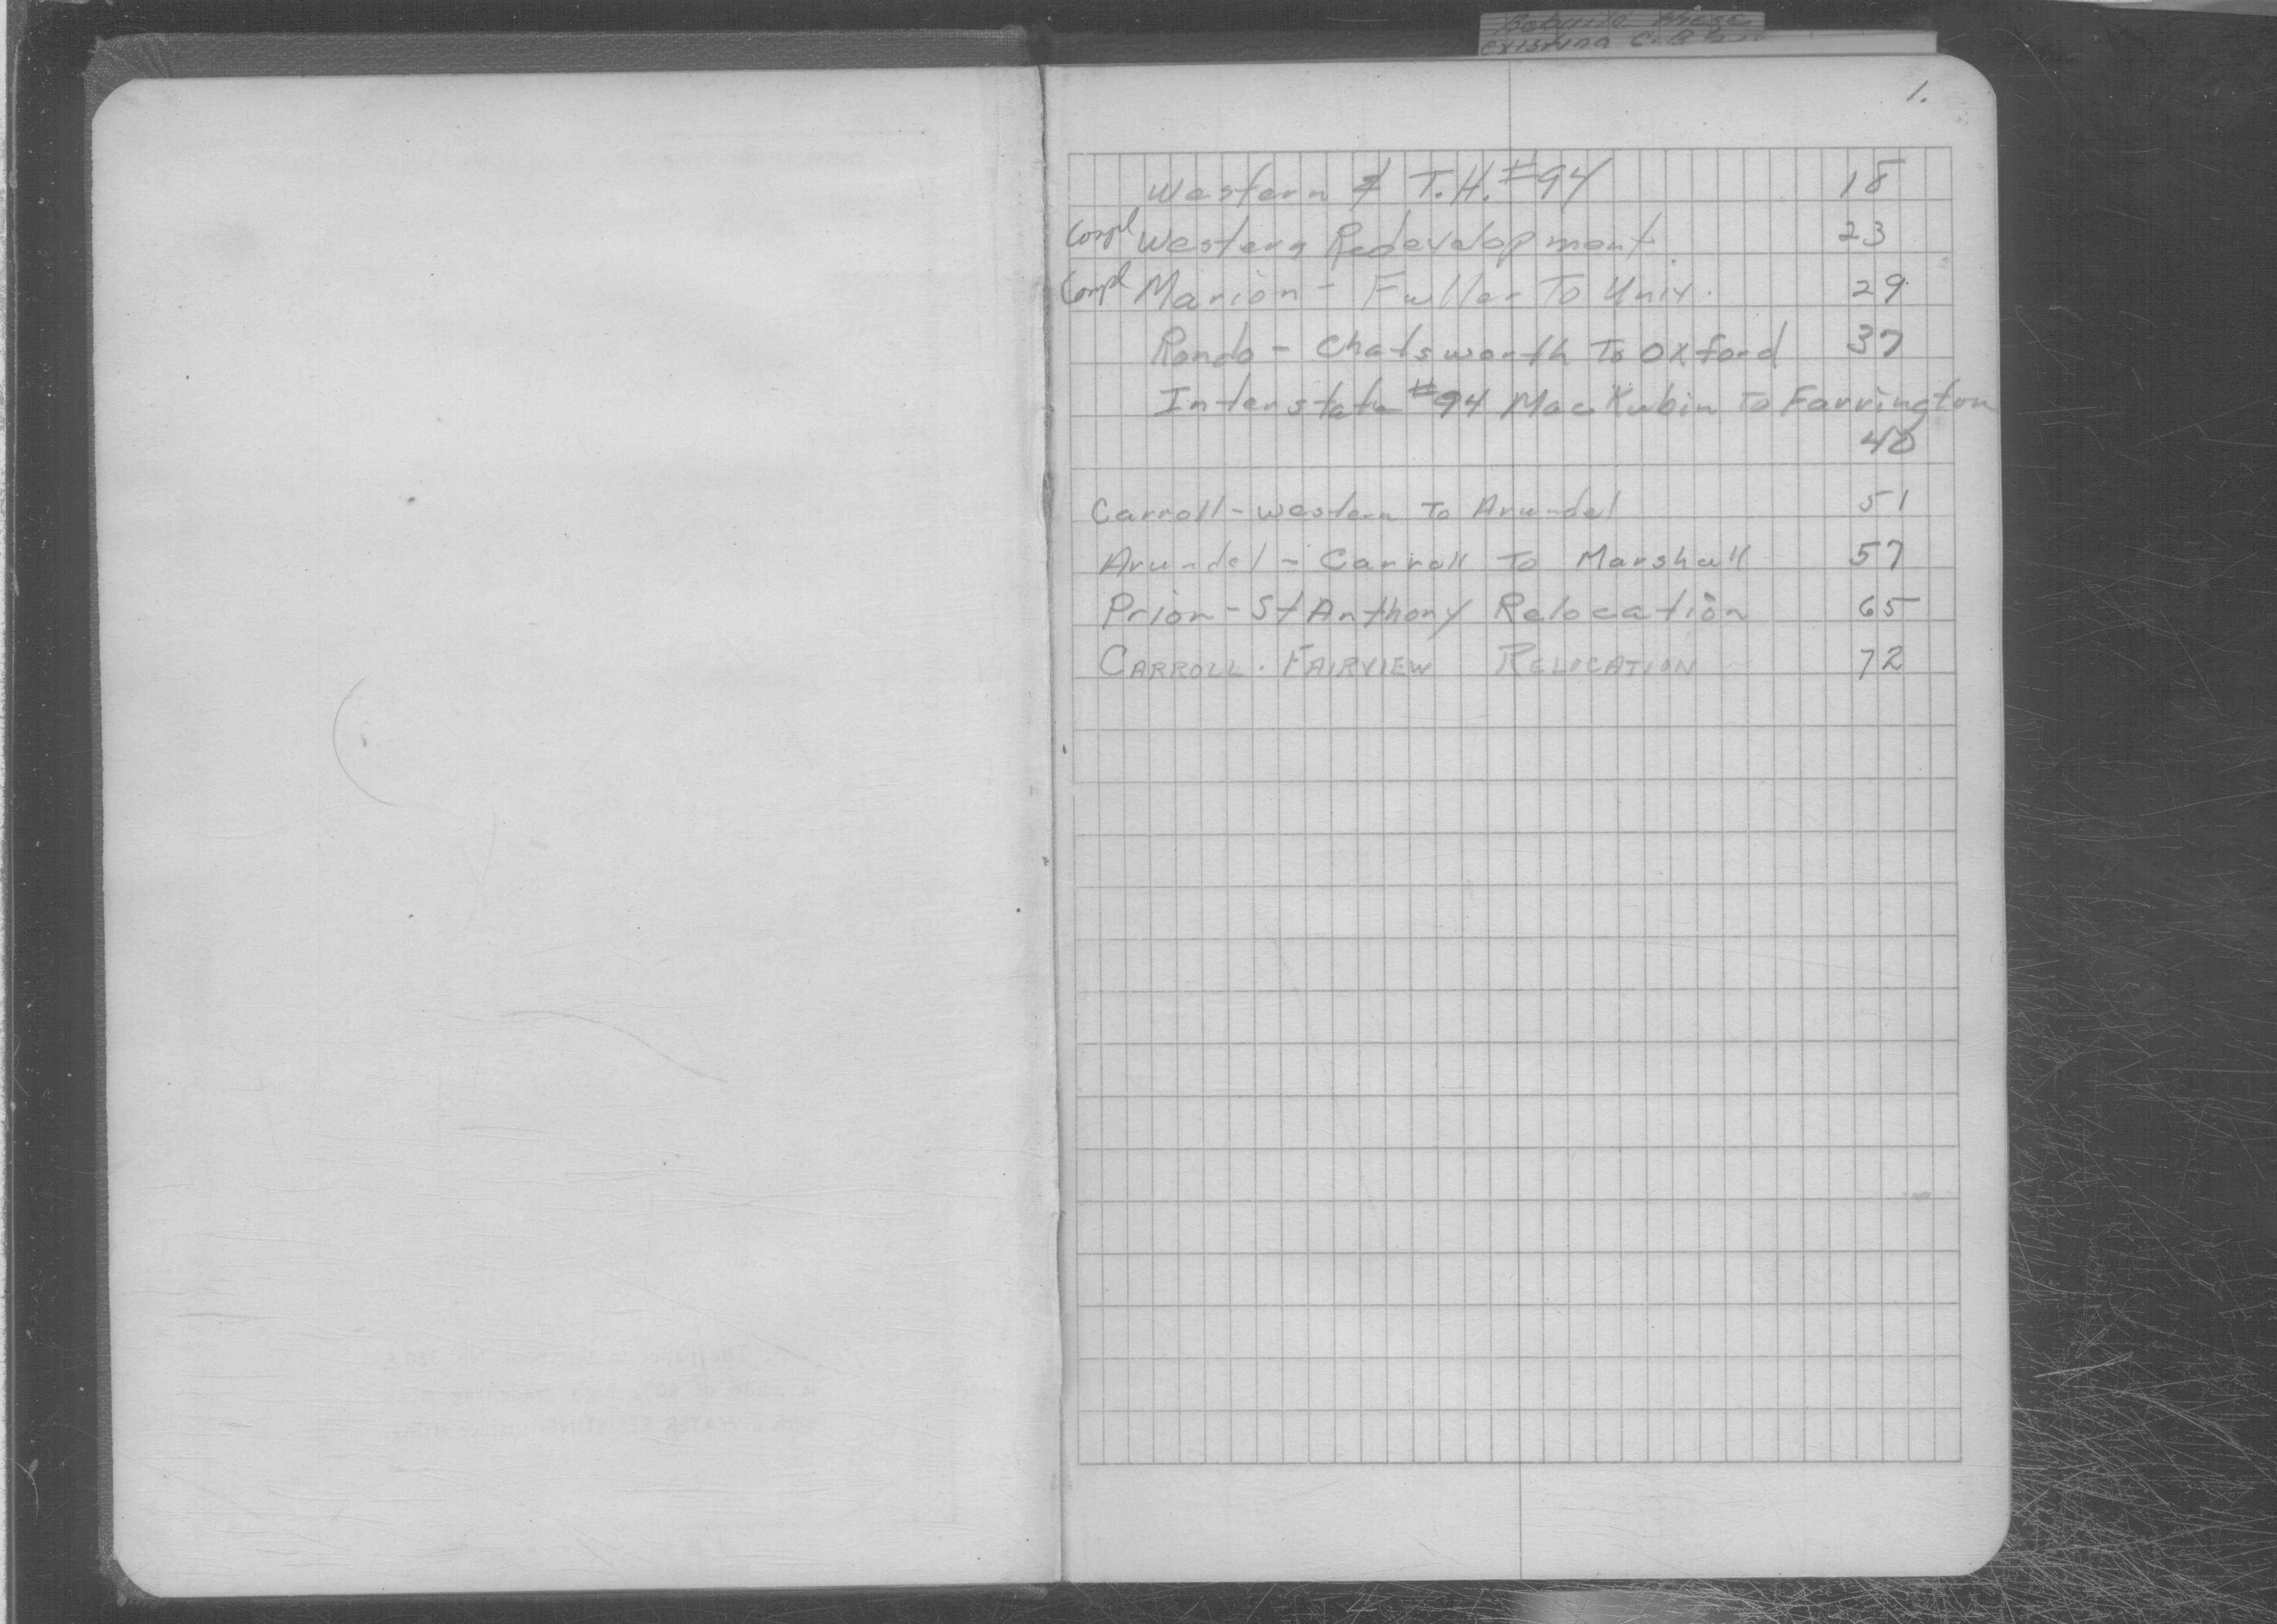 Rebuild these
existing C.B.
1.
Western & T.H. #94 18
Compl Western Redevelopment 23
Compl Marion - Fuller To Univ. 29
Rondo - Chatsworth To Oxford 37
Interstate #94 MacKubin To Farrington
40
Carroll - Western To Arundel 51
Arundel - Carroll To Marshall 57
Prior - St Anthony Relocation 65
CARROLL - FAIRVIEW RELOCATION 72